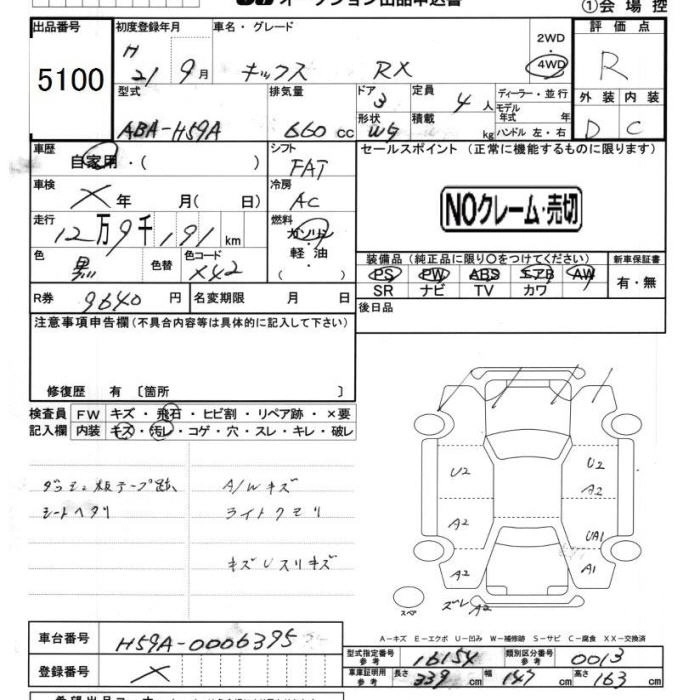 オークション出品申込書
①会場控
出品番号 初度登録年月 車名・グレード 評価点
5100 H 21年 9月 キックス RX 2WD・4WD R
型式 排気量 ドア 3 定員 4人 ディーラー・並行 外装 内装
ABA-H59A 660cc 形状 Wg 積載 kg モデル年式 年 ハンドル 左・右 D C
車歴 自家用・( ) シフト FAT セールスポイント (正常に機能するものに限ります)
車検 ✕年 月( 日) 冷房 AC
NOクレーム・売切
走行 12万9千191km 燃料 ガソリン・軽油・( )
色 黒 色替 色コード X42
装備品(純正品に限り〇をつけてください) 新車保証書
PS PW ABS エアB AW 有・無
SR ナビ TV カワ
R券 9640円 名変期限 月 日 後日品
注意事項申告欄(不具合内容等は具体的に記入して下さい)
修復歴 有 〔箇所 〕
検査員 FW キズ・飛石・ヒビ割・リペア跡・×要
記入欄 内装 キズ・汚レ・コゲ・穴・スレ・キレ・破レ
テープ跡 A/Wキズ
シートヘタリ ライトクモリ
キズUスリキズ
U2 U2
A2
A2 UA1
A2 A1
スペ ズレ A2
A-キズ E-エクボ U-凹み W-補修跡 S-サビ C-腐食 XX-交換済
車台番号 H59A-0006395
型式指定番号 参考 16154 類別区分番号 参考 0013
登録番号 ✕
車庫証明用 参考 長さ 339cm 幅 147cm 高さ 163cm